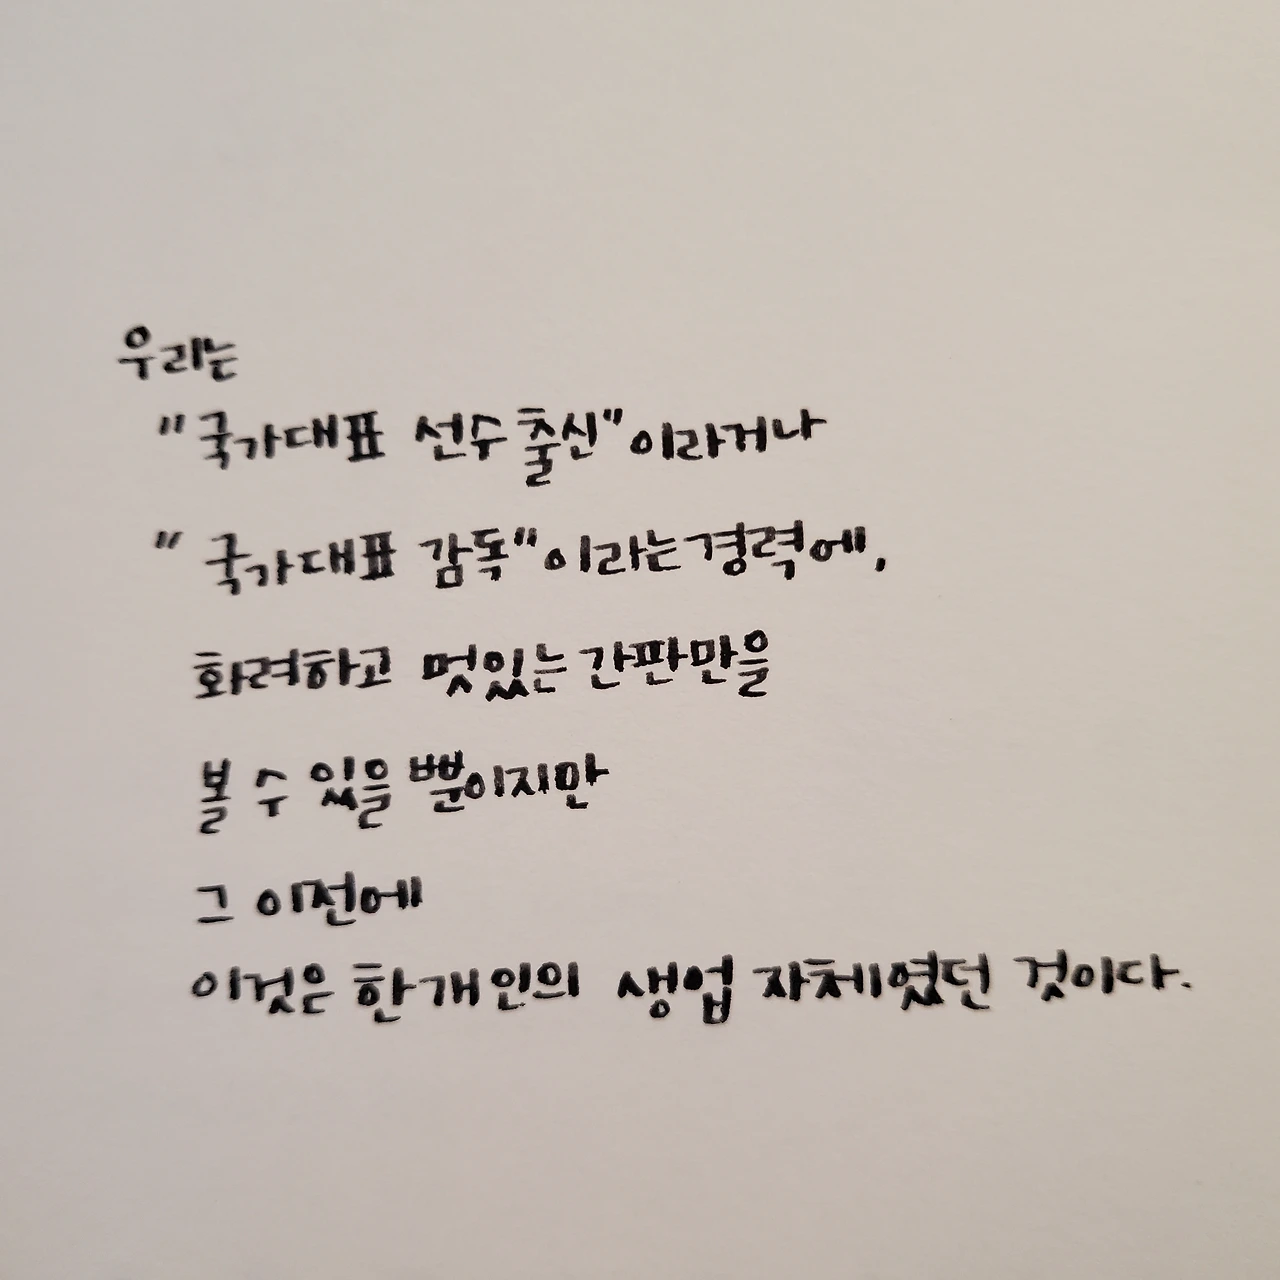 우리는
"국가대표 선수 출신"이라거나
"국가대표 감독"이라는 경력에,
화려하고 멋있는 간판만을
볼 수 있을 뿐이지만
그 이전에
이것은 한 개인의 생업 자체였던 것이다.